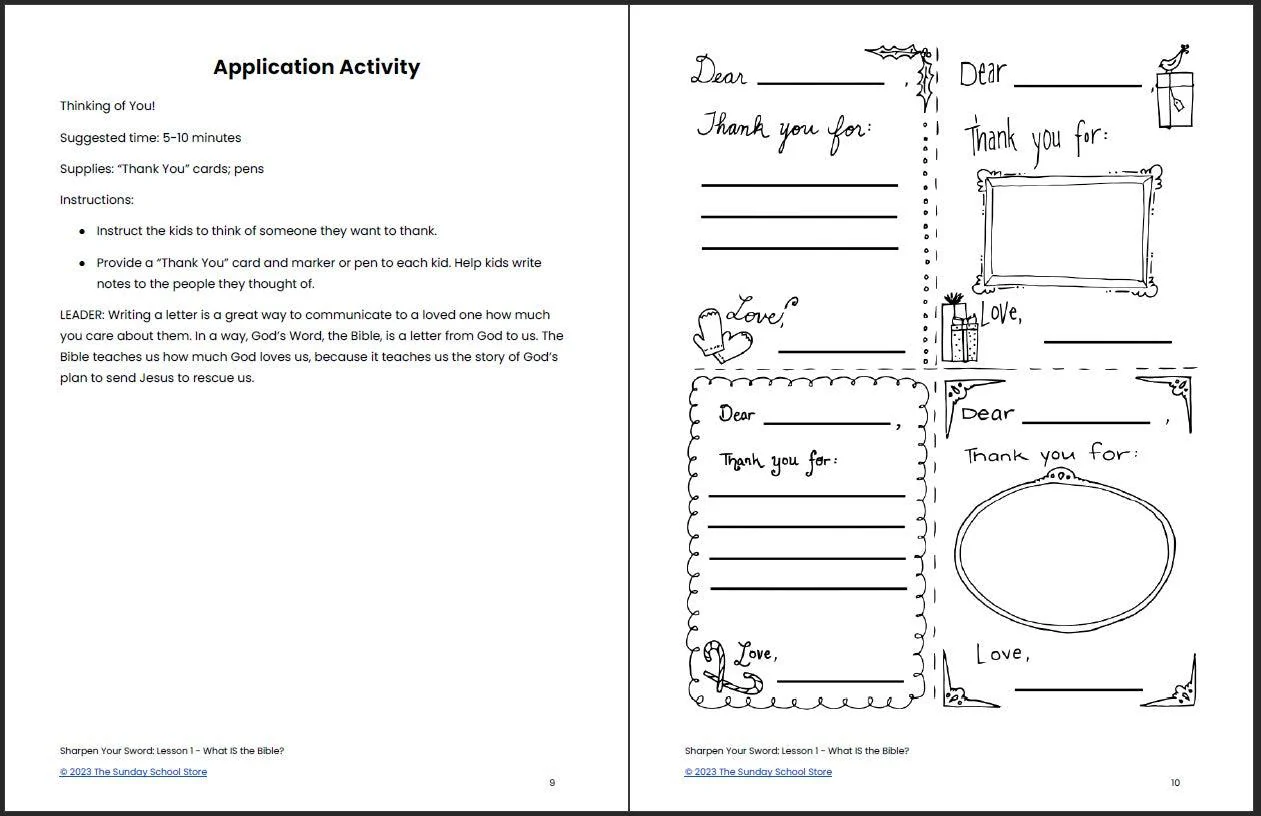 Application Activity
Thinking of You!
Suggested time: 5-10 minutes
Supplies: “Thank You” cards; pens
Instructions:
● Instruct the kids to think of someone they want to thank.
● Provide a “Thank You” card and marker or pen to each kid. Help kids write
notes to the people they thought of.
LEADER: Writing a letter is a great way to communicate to a loved one how much
you care about them. In a way, God’s Word, the Bible, is a letter from God to us. The
Bible teaches us how much God loves us, because it teaches us the story of God’s
plan to send Jesus to rescue us.
Sharpen Your Sword: Lesson 1 - What IS the Bible?
© 2023 The Sunday School Store
9
Dear ,
Thank you for:
Love,
Dear ,
Thank you for:
Love,
Dear ,
Thank you for:
Love,
Dear ,
Thank you for:
Love,
Sharpen Your Sword: Lesson 1 - What IS the Bible?
© 2023 The Sunday School Store
10